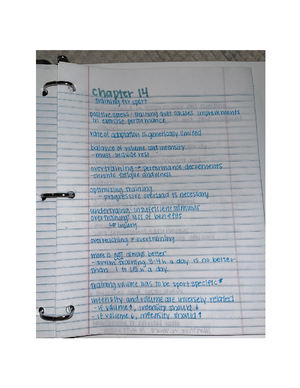 Chapter 14
training for sport
positive stress: training that causes improvements
in exercise performance
rate of adaptation is genetically limited
balance of volume and intensity
- must include rest
overtraining → performance decrements
- chronic fatigue and illness
optimizing training
- progressive overload is necessary
undertraining: insufficient stimulus
overtraining: loss of benefits
↳ injury
overreaching ≠ overtraining
more is not always better
- swim training 3-4 h a day is no better
than 1 to 1.5 h a day
training volume has to be sport specific
intensity and volume are inversely related
- if volume ↑, intensity should ↓
- if volume ↓, intensity should ↑